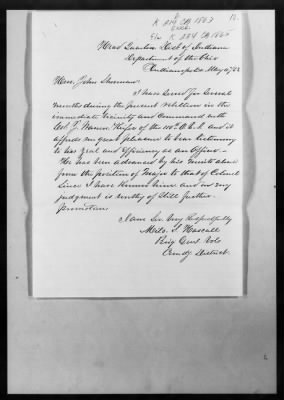 K 274 CB 1863
Head Quarters Dist of Indiana
Department of the Ohio
Indianapolis May 10, '63
Hon. John Sherman
I have served for several
months during the present rebellion in the
immediate vicinity and command with
Col. J. Warren Keifer of the 110th O.V.I. and it
affords me great pleasure to bear testimony
to his zeal and efficiency as an officer.
He has been advanced by his merits alone
from the position of Major to that of Colonel
since I have known him and in my
judgment is worthy of still further
promotion.
I am Sir Very Respectfully
Milo S. Hascall
Brig Genl Vols
Comdg District